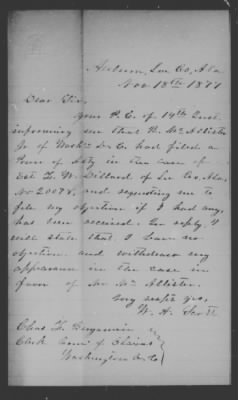 Auburn, Lee Co, Ala
Nov 18th 1877
Dear Sir,
Your P.C. of 14th Inst
informing me that R. McAllister
Jr of Wash. D.C. had filed a
Power of Atty in the case of
Est F. W. Dillard of Lee Co, Ala,
No 20078, and requesting me to
file my objection if I had any,
has been received. In reply, I
will state that I have no
objection and withdraw my
appearance in the case in
favor of Mr McAllister.
Very respt yrs,
W. H.
Chas F. Benjamin
Clerk Com. of Claims
Washington D.C.